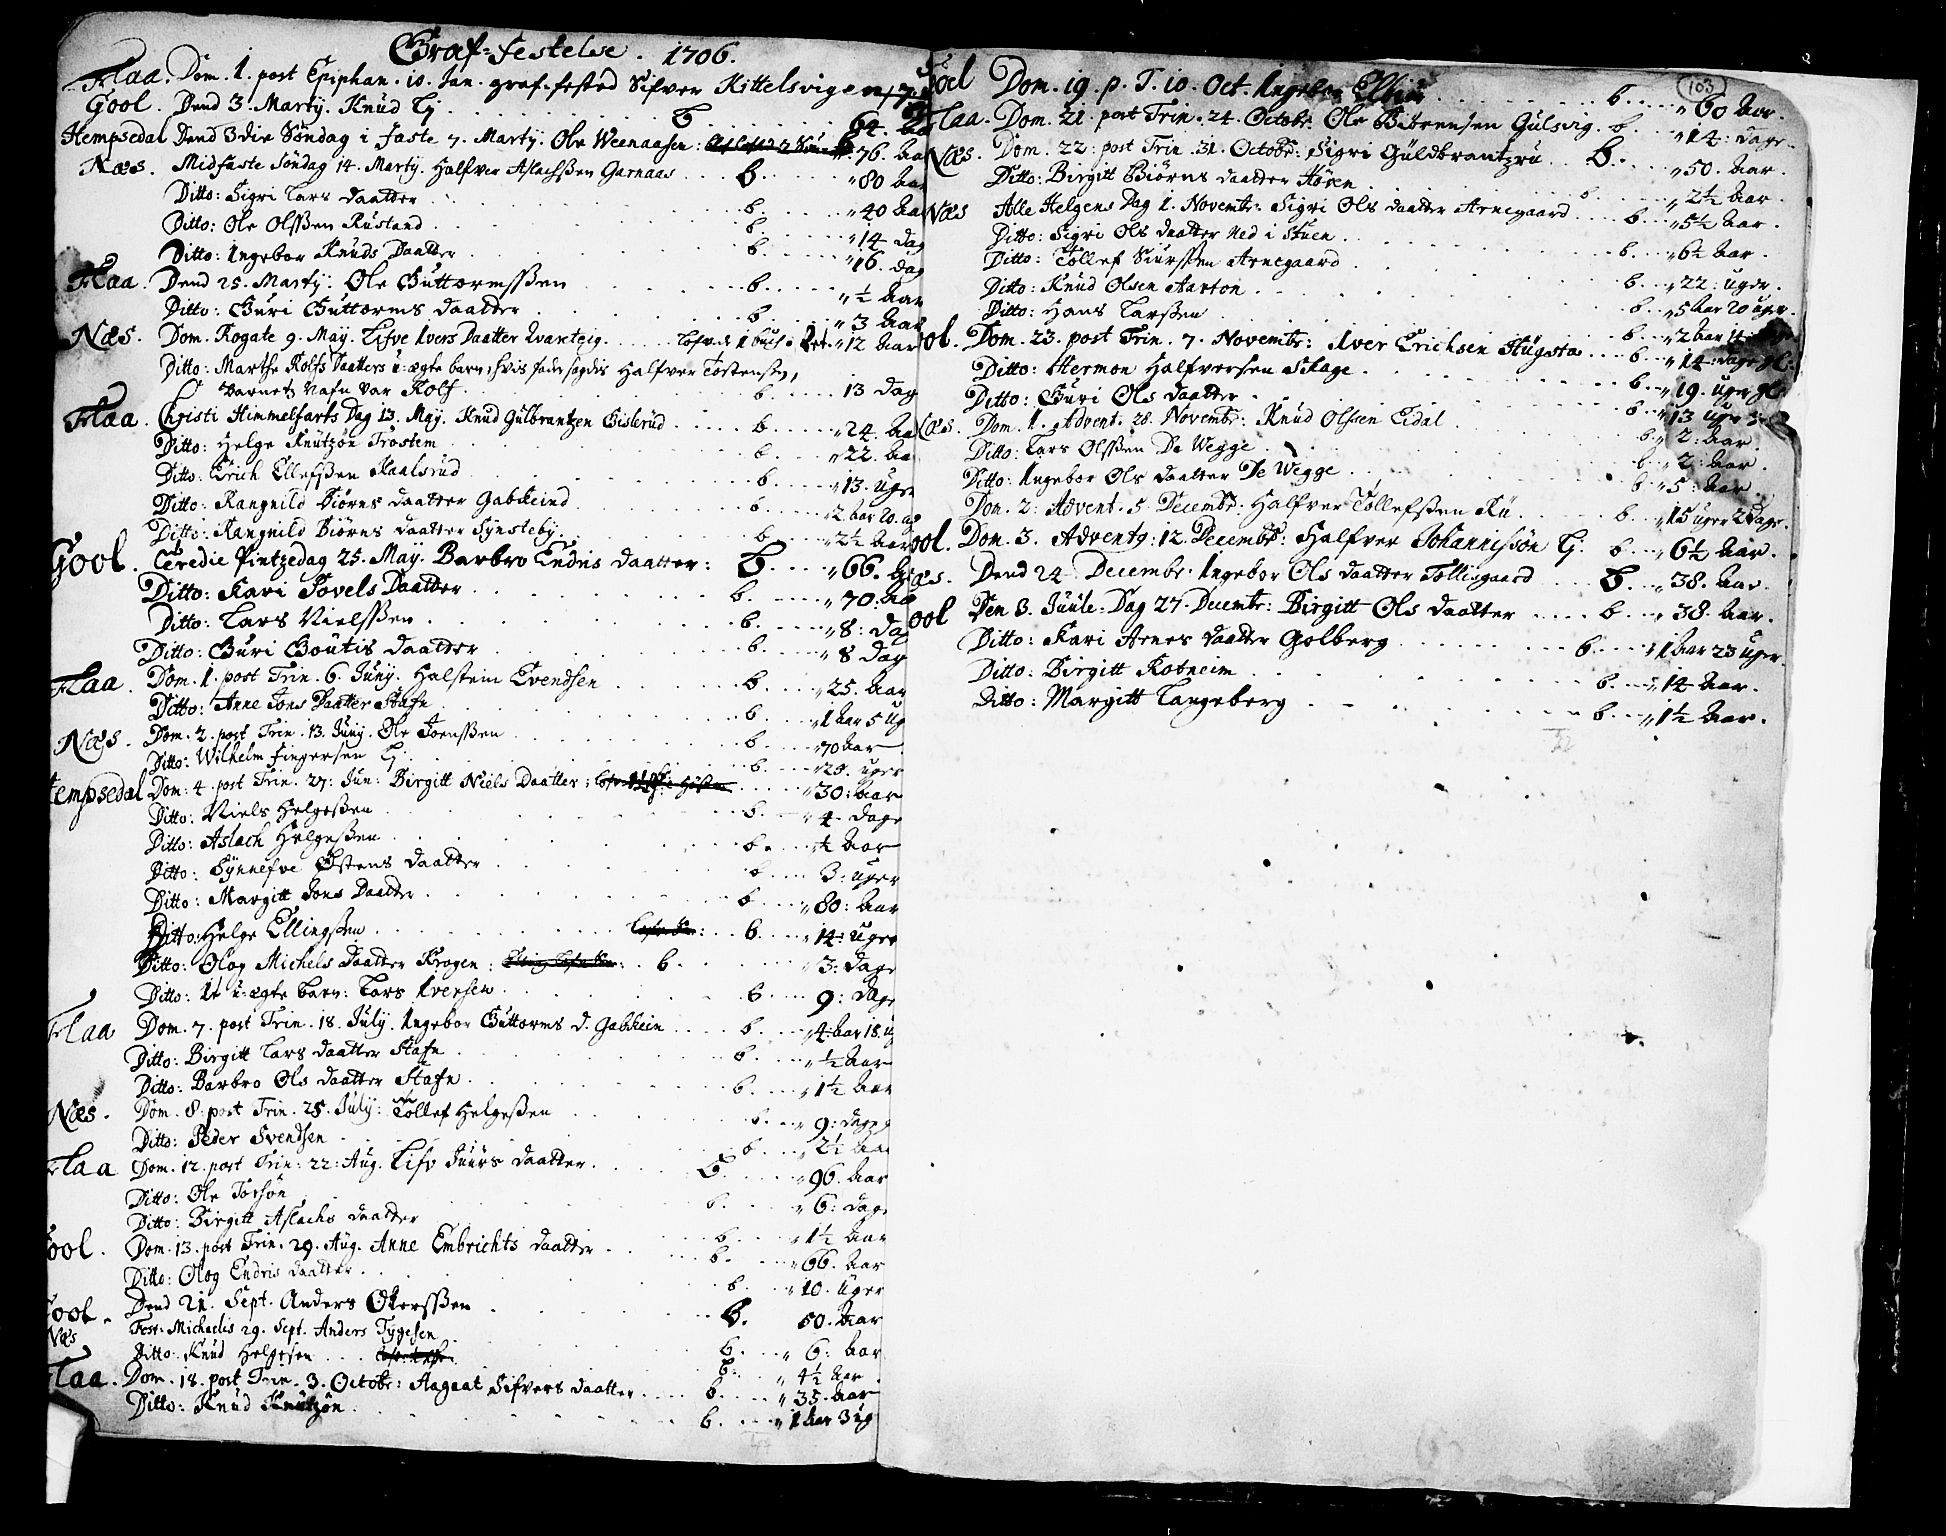 Graf-festelse . 1706.
Flaa. Dom. 1. post Epiphan. 10. Jan. graf-fested Sifver Kittelsvigen
Gool. Dend 3. Martij. Knud Lj b 64. Aar
Hempsedal Dend 3die Søndag i Faste 7. Martij. Ole Weenaasen: b "76. Aar
Næs. Midfaste Søndag 14. Martij. Halfver Aslachssen Garnaas b. "80 Aar
Ditto: Sigri Lars daatter b. "40 Aar
Ditto: Ole Olssen Rustand b. "14 dag
Ditto: Ingebor Knuds Daatter b. "16. dag
Flaa. Dend 25. Martij. Ole Guttormssen b. "½ Aar
Ditto: Guri Guttorms daatter b. "3 Aar
Næs. Dom. Rogate 9. Maij. Lifve Ivers Daatter Qvarteig. "12 Aar
Ditto: Marthe Rolfs Daatters u-ægte barn, hvis fader sagdis Halfver Tostensen,
Barnets nafn var Rolf. b. 13 dag
Flaa. Christi Himmelfarts Dag 13. Maij. Knud Gulbrantzen Gislerud b. "24. Aar
Ditto: Helge Knutzøn Trostem b. "22. Aar
Ditto: Erich Ellefssen Kaalsrud b. "13. uger
Ditto: Rangnild Biørns daatter Gabskeind b. "2. Aar 20. ug
Ditto: Rangnild Biørns daatter Synsteby. b. "2½ Aar
Gool. Tredie Pintzedag 25. May. Barbro Endris daatter: b. "66. Aar
Ditto: Kari Povels Daatter b. "70. Aar
Ditto: Lars Nielssen b. "8: dag
Ditto: Guri Goutis daatter b. "8 dag
Flaa. Dom. 1. post Trin. 6. Junij. Halstein Evendsen b. "25. Aar
Ditto: Anne Jons Daatter Stafn b. "1 Aar 5 ug
Næs. Dom. 2. post Trin. 13. Junij. Ole Joenssen b. "70 Aar
Ditto: Wilhelm Fingersen Lj. b. "25. uger
Hempsedal Dom: 4. post Trin. 27: Jun: Birgitt Niels Daatter: "30: Aar
Ditto: Niels Helgessen b. "4. dage
Ditto: Aslach Helgessen b. "½ Aar
Ditto: Synnefve Østens daatter b. 3: uger
Ditto: Margitt Jons Daatter b. "80: Aar
Ditto: Helge Ellingssen b. "14: uger
Ditto: Olog Michels daatter Krogen: b. "3: dage
Ditto: It u-ægte barn: Lars Iversen b. 9: dage
Flaa Dom. 7. post Trin. 18. July. Ingebor Guttorms d. Gabskein b. "4. Aar 18. u
Ditto: Birgitt Lars daatter Stafn b. "½ Aar
Ditto: Barbro Ols daatter Stafn b. "1½ Aar
Næs. Dom. 8. post Trin. 25. July: Tollef Helgessen b. "9: dage
Ditto: Peder Svendsen b. "2½ Aar
Flaa Dom. 12. post Trin: 22: Aug. Lifv Juurs daatter. b. "96. Aar
Ditto: Ole Torsøn b. "6: dage
Ditto: Birgitt Aslachs daatter b. "1½ Aar
Gool. Dom. 13. post Trin. 29. Aug. Anne Embrichts daatter b. "66. Aar
Ditto: Olog Endris daatter b. "10. uger
Gool. Dend 21. Sept. Anders Oterssen b. 50. Aar
Næs Fest: Michaelis 29. Sept. Anders Tygesen b. "6: Aar
Ditto: Knud Helgesen b. "4½ Aar
Flaa. Dom. 18. post Trin. 3. Octobr: Aagaat Sifvers daatter b. "35. Aar
Ditto: Knud Knutzøn b. "1 Aar 3 ug
103
Gool Dom. 19. p. T. 10. Oct. Ingebor b. "60 Aar.
Flaa. Dom. 21. post Trin. 24. Octobr. Ole Biørensen Gulsvig. b. "14: dage.
Næs. Dom. 22. post Trin. 31. Octobr: Sigri Guldbrantzru b. "50. Aar.
Ditto: Birgitt Biørns daatter Høven b "2½ Aar.
Næs Alle Helgens Dag 1. Novembr: Sigri Ols daatter Arnegaard b. "5½ Aar.
Ditto: Sigri Ols daatter Ned i Stuen b. "6½ Aar.
Ditto: Tollef Siurssen Arnegaard b. "22: uger.
Ditto: Knud Olsen Aarton b. "5 Aar 20 uger.
Ditto: Hans Larssen b. "2 Aar
Gool. Dom. 23. post Trin. 7. Novembr: Iver Erichsen Hugsta b. "14. dage gl:
Ditto: Hermon Halfversen Skage b. "19. uger gl
Ditto: Guri Ols daatter b. "13 uger
Næs. Dom. 1. Advent. 28. Novembr: Knud Olssen Eidal b. "2: Aar
Ditto: Lars Olssen De Wegge b. "2: Aar.
Ditto: Ingebor Ols daatter De Wegge b. "5: Aar
Dom. 2. Advent. 5. Decembr: Halfver Tollefssen Ru b. "15 uger 2 dage.
Gool. Dom. 3. Adventg: 12. Decembr: Halfver Johannessøn Lj. b. "6½ Aar.
Næs. Dend 24 Decembr. Ingebor Ols daatter Tollisgaard b. "38. Aar.
Gool Den 3. Juule-Dag 27. Decembr: Birgitt Ols daatter b. "38. Aar.
Ditto: Kari Arnes daatter Golberg b. "1 Aar 23 uger.
Ditto: Birgitt Rotneim b. "14 Aar.
Ditto: Margitt Langeberg b. "1½ Aar.